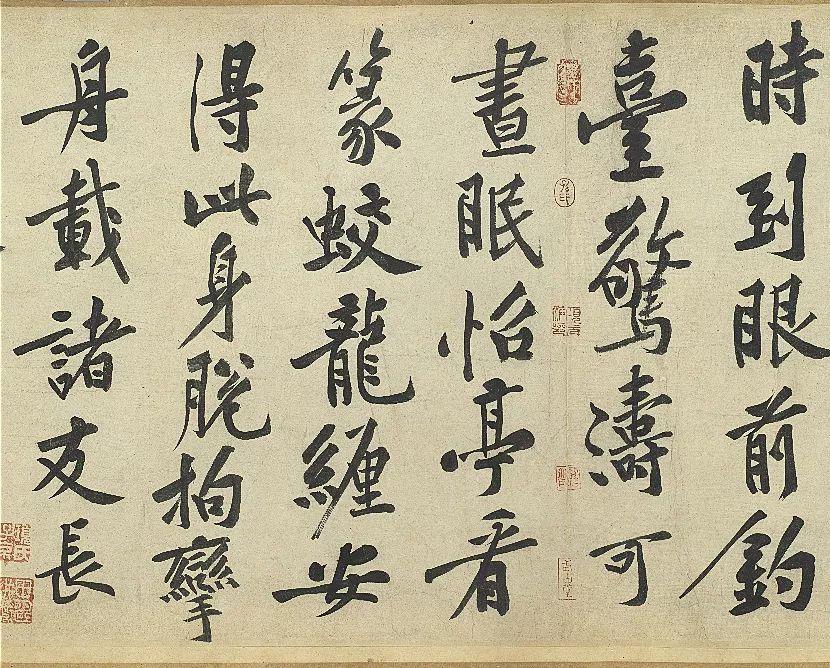 時到眼前釣
臺驚濤可
晝眠怡亭看
篆蛟龍纏安
得此身脫拘攣
舟載諸友長